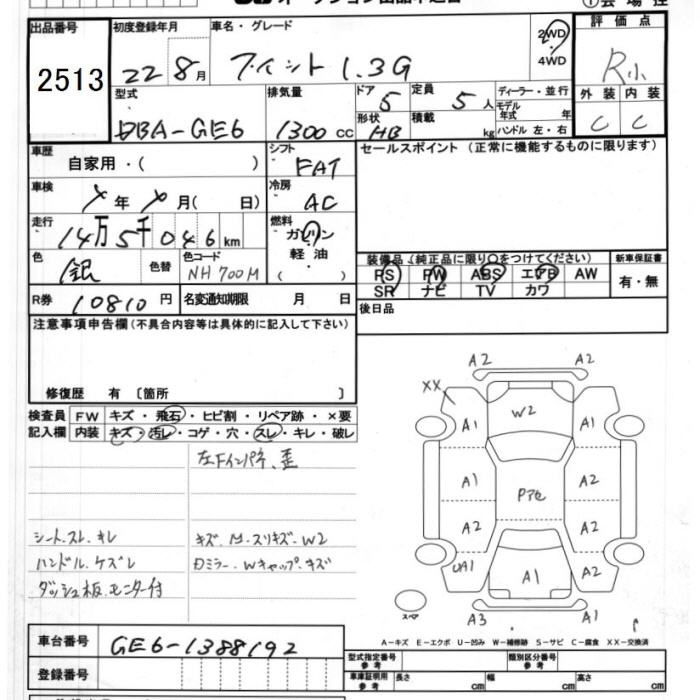 オークション出品申込書
出品番号
2513
初度登録年月
22 8月
車名・グレード
フィット 1.3G
2WD・4WD
評価点
R小
型式
DBA-GE6
排気量
1300 cc
ドア 5
定員 5人
形状 HB
積載 kg
ディーラー・並行
モデル年式 年
ハンドル 左・右
外装 内装
C C
車歴
自家用・( )
シフト
FAT
セールスポイント (正常に機能するものに限ります)
車検
年 月( 日)
冷房
AC
走行
14万5千046km
燃料
ガソリン
軽油
色
銀
色替
色コード
NH700M
装備品 (純正品に限り○をつけてください)
PS PW ABS エアB AW
SR ナビ TV カワ
新車保証書
有・無
R券 10810円
名変通知期限 月 日
後日品
注意事項申告欄(不具合内容等は具体的に記入して下さい)
修復歴 有 〔箇所 〕
検査員記入欄
FW キズ・飛石・ヒビ割・リペア跡・×要
内装 キズ・汚レ・コゲ・穴・スレ・キレ・破レ
左Fインパネ、歪
シート.スレ.キレ
キズ.M.スリキズ.W2
ハンドル.ケズレ
Dミラー.Wキャップ.キズ
ダッシュ板.モニター付
A2 A2
XX
W2
A1 A1
A1 Pアセ A2
A2 A2
UA1 A1 A2
スペア
A3 A1
A-キズ E-エクボ U-凹み W-補修跡 S-サビ C-腐食 XX-交換済
車台番号
GE6-1388192
登録番号
型式指定番号 参考
類別区分番号 参考
車庫証明用 参考
長さ cm 幅 cm 高さ cm